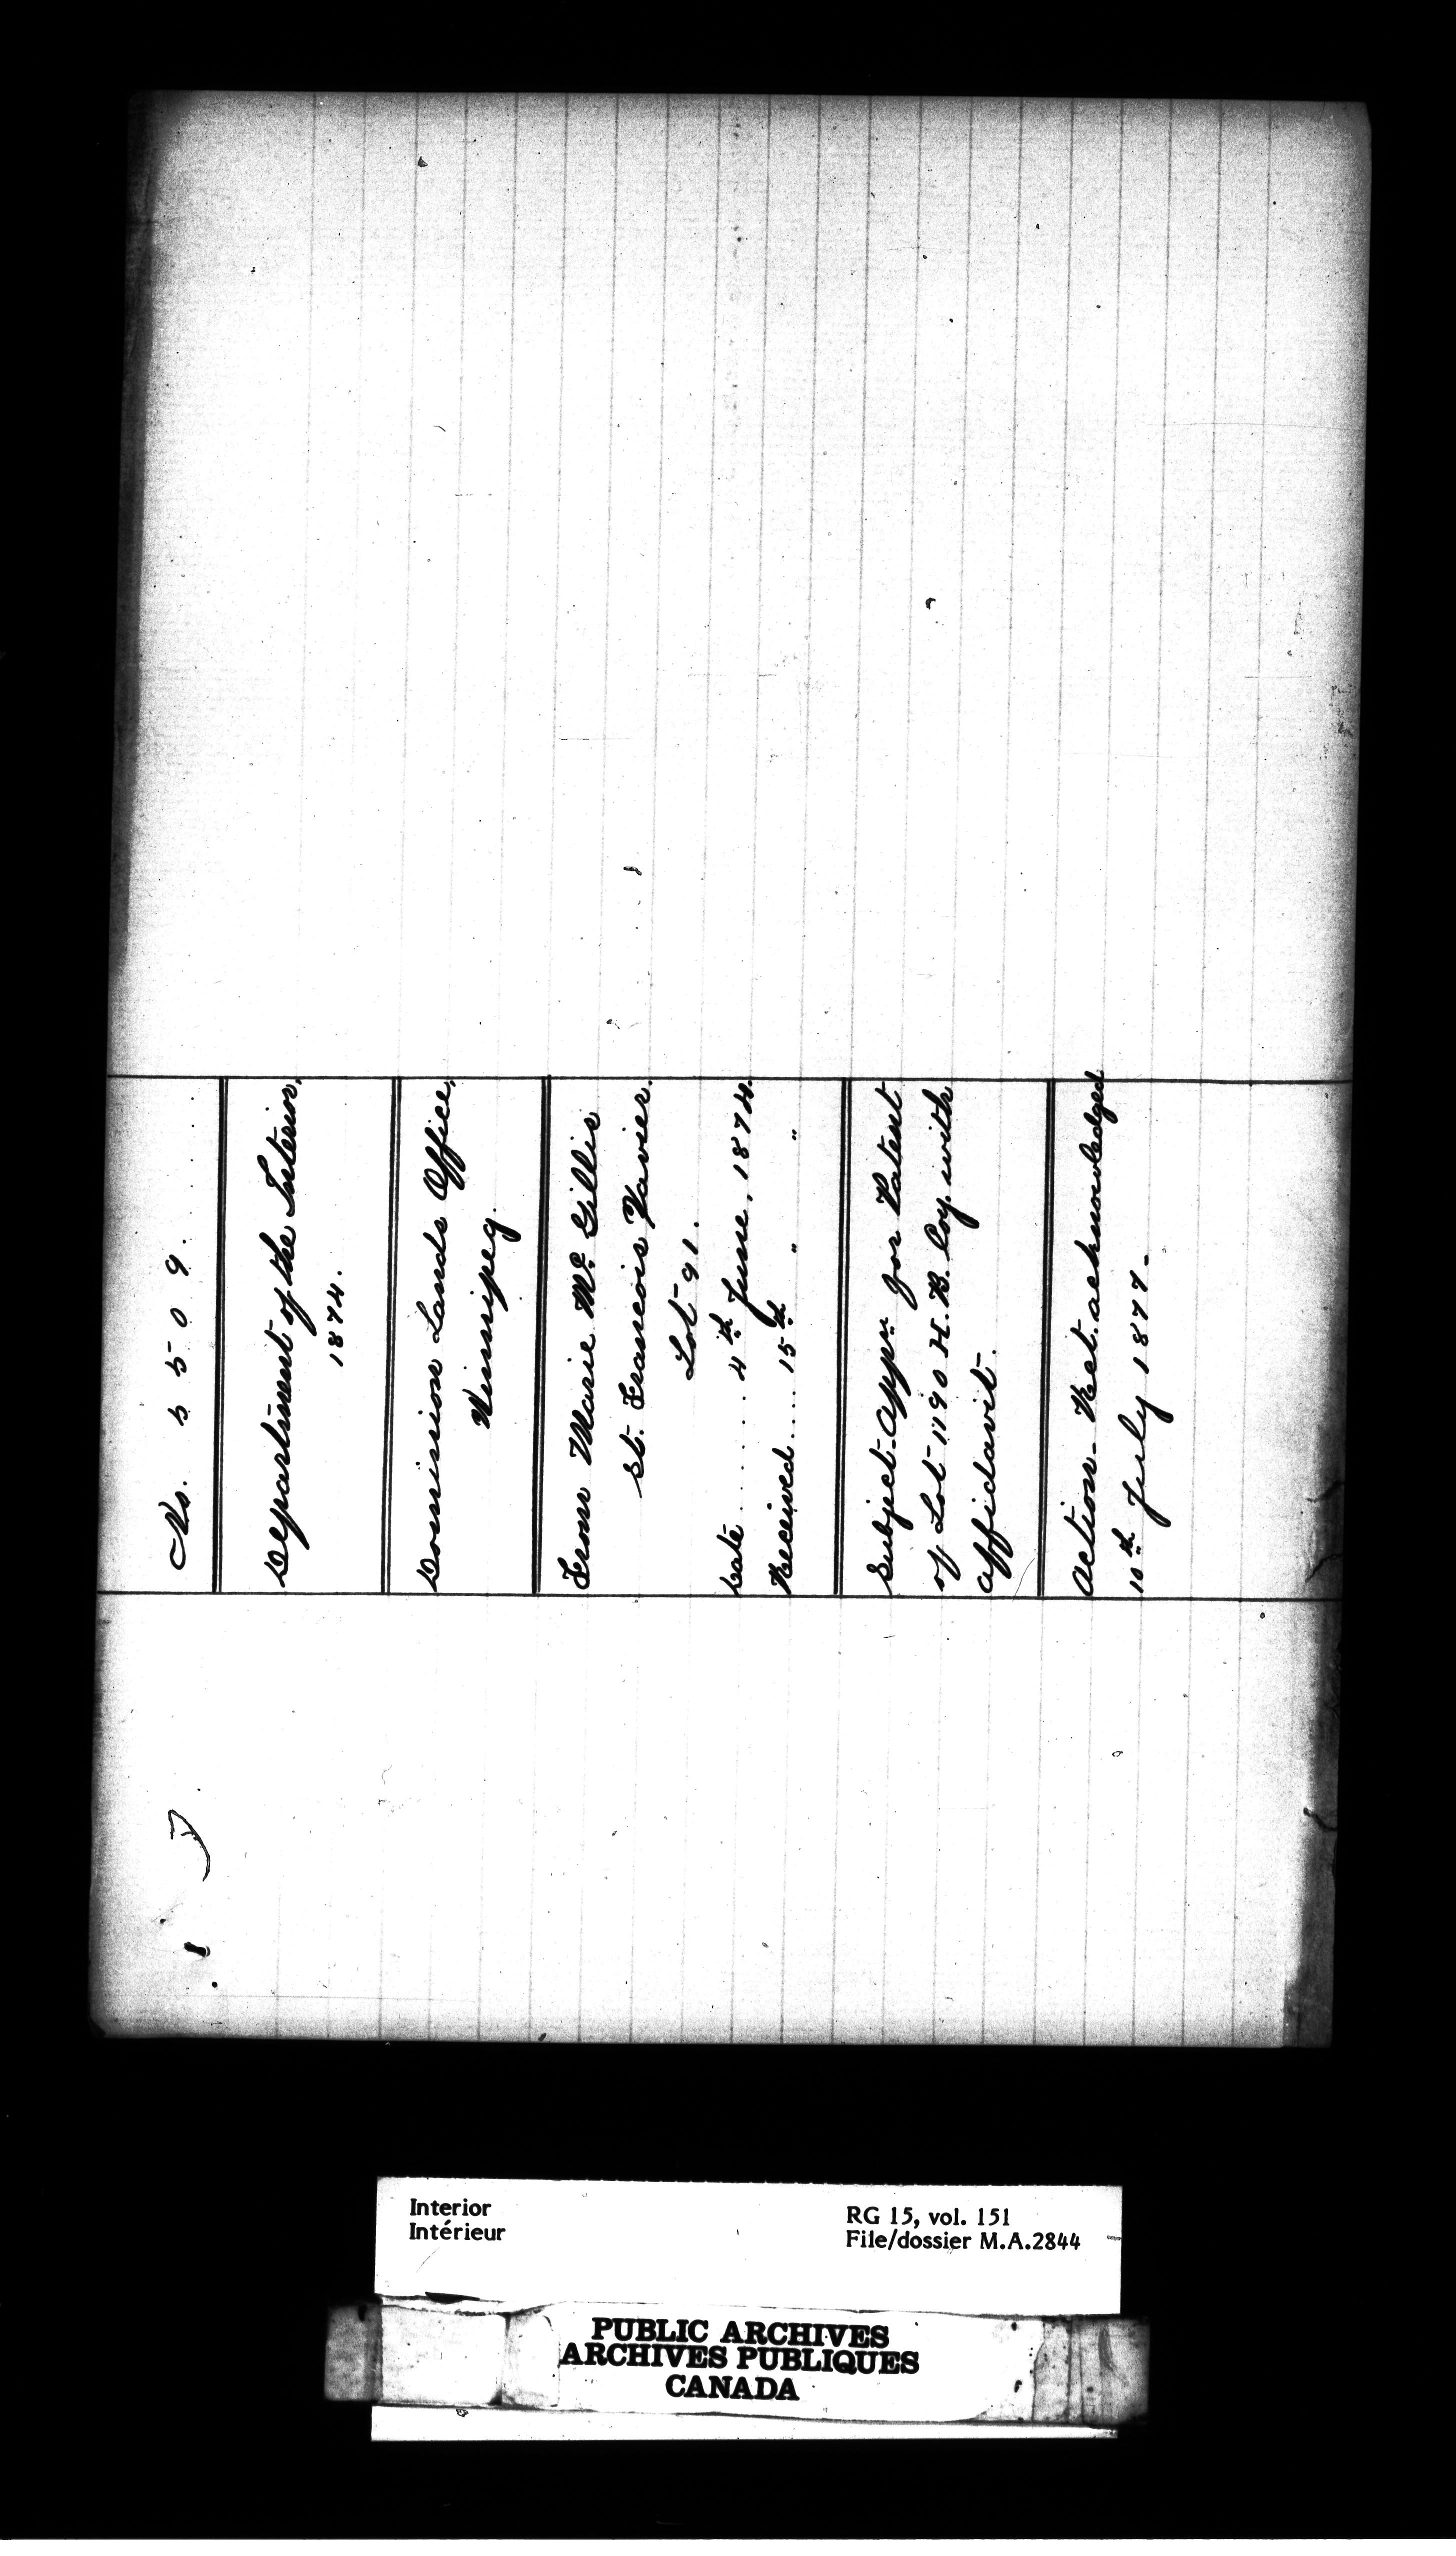 No. 5509.
Department of the Interior,
1874.
Dominion Lands Office,
Winnipeg.
From Marie Mc. Gillis
St. Francois Xavier.
Lot 91.
Date ...... 4th June, 1874.
Received .... 15th " "
Subject - Appn for Patent
of Lot 1190 H. B. Coy. with
affidavit.
Action - Rct. acknowledged
10th July 1877-
Interior
Intérieur
RG 15, vol. 151
File/dossier M.A.2844
PUBLIC ARCHIVES
ARCHIVES PUBLIQUES
CANADA